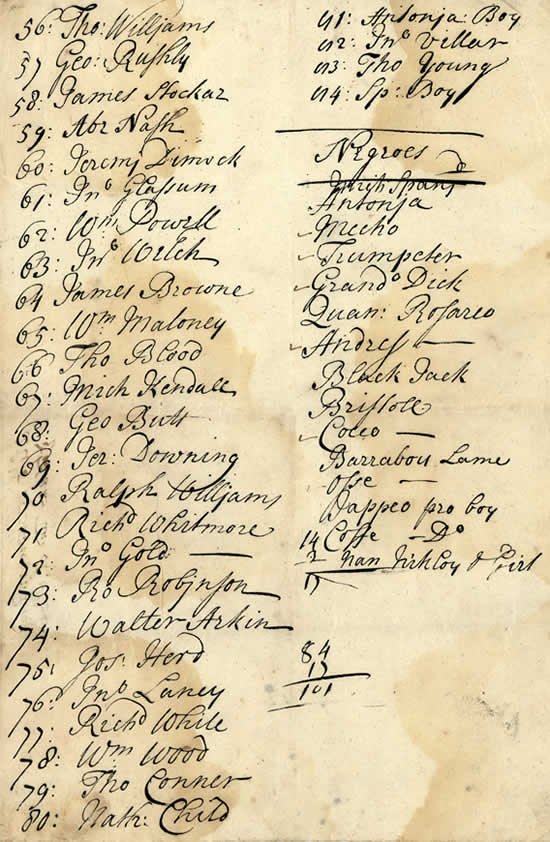 56: Tho: Williams
57 Geo: Rushly
58: James Stockar
59: Abr Nash
60: Jeremy Dimock
61: Jno Glassum
62: Wm Powell
63: Jno Welch
64 James Browne
65: Wm Maloney
66 Tho Blood
67: Mich Kendall
68: Geo Butt
69: Jer: Downing
70 Ralph Williams
71 Richd Whitmore
72: Jno Gold —
73: Ro Robinson
74: Walter Arkin
75: Jos: Herd
76: Jno Laney
77: Richd While
78: Wm Wood
79: Tho Conner
80: Nath: Child
Antonja: Boy
Jno Villar
Tho Young
Sp: Boy
Negroes
Antonja
Mecho
Trumpeter
Grando Dick
Quan: Rosareo
Andress —
Black Jack
Bristoll
Cocco —
Barrabou Lame
Osse —
Dappeo pro boy
14 Coffe — Do
Nan & Girl
17
84
17
101